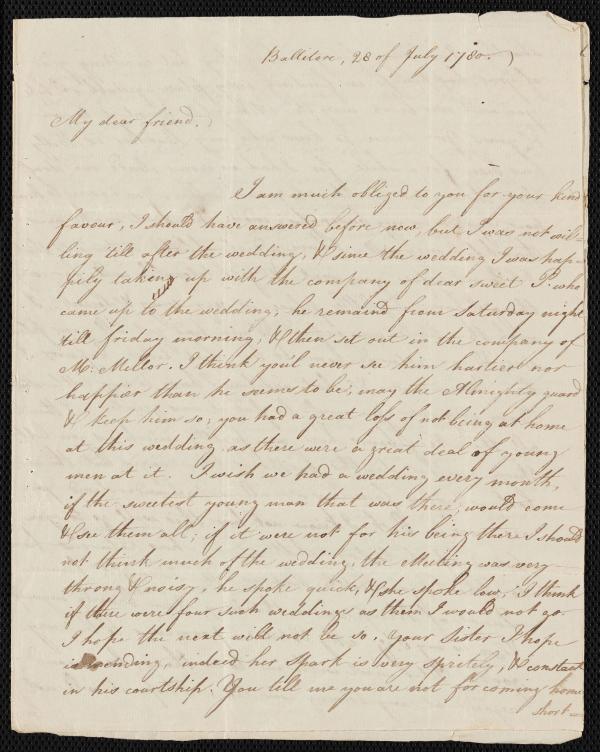 Ballitore, 28 of July 1780.
My dear friend.
I am much obliged to you for your kind
favour, I should have answered before now, but I was not wil-
ling 'till after the wedding, & since the wedding I was hap-
pily taking up with the company of dear sweet P. who
came up to the wedding, he remaind from Saturday night
till friday morning, & then set out in the company of
M: Mellor. I think you'l never see him hartier nor
happier than he seems to be, may the Almighty guard
& keep him so; you had a great loss of not being at home
at this wedding as there were a great deal of young
men at it. I wish we had a wedding every month,
if the sweetest young man that was there, would come
& see them all; if it were not for his being there I should
not think much of the wedding, the Meeting was very
throng & noisy, he spoke quick, & she spoke low, I think
if there were four such weddings as them I would not go
I hope the next will not be so. Your Sister I hope
is mending, indeed her Spark is very spritely, & constant
in his courtship. You till me you are not for coming home
short-